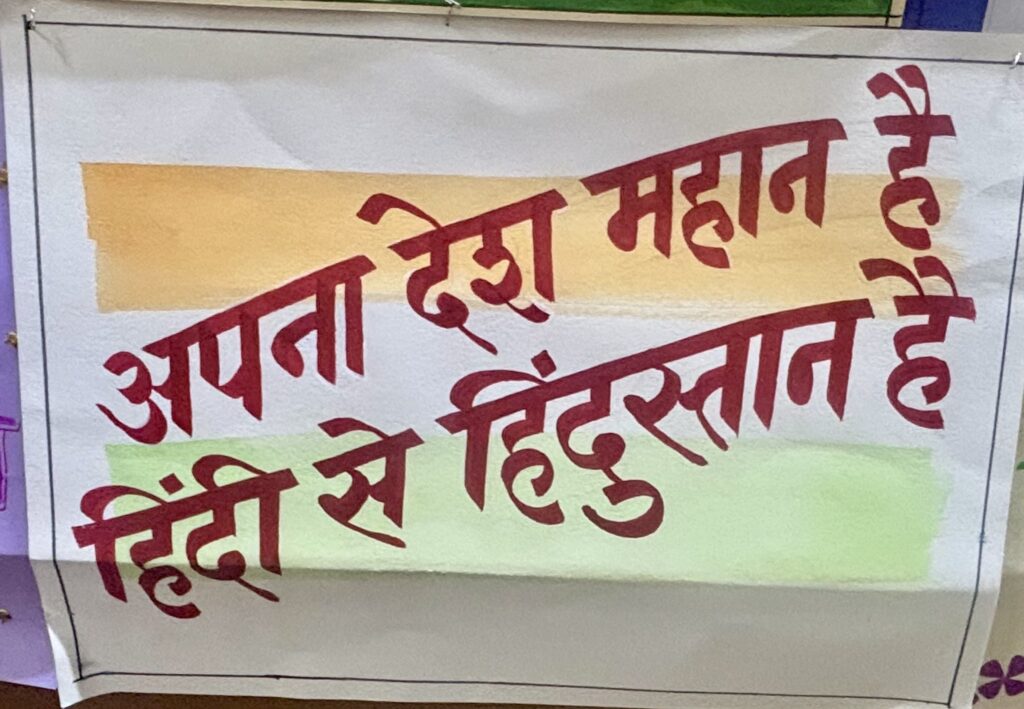 अपना देश महान है
हिंदी से हिंदुस्तान है